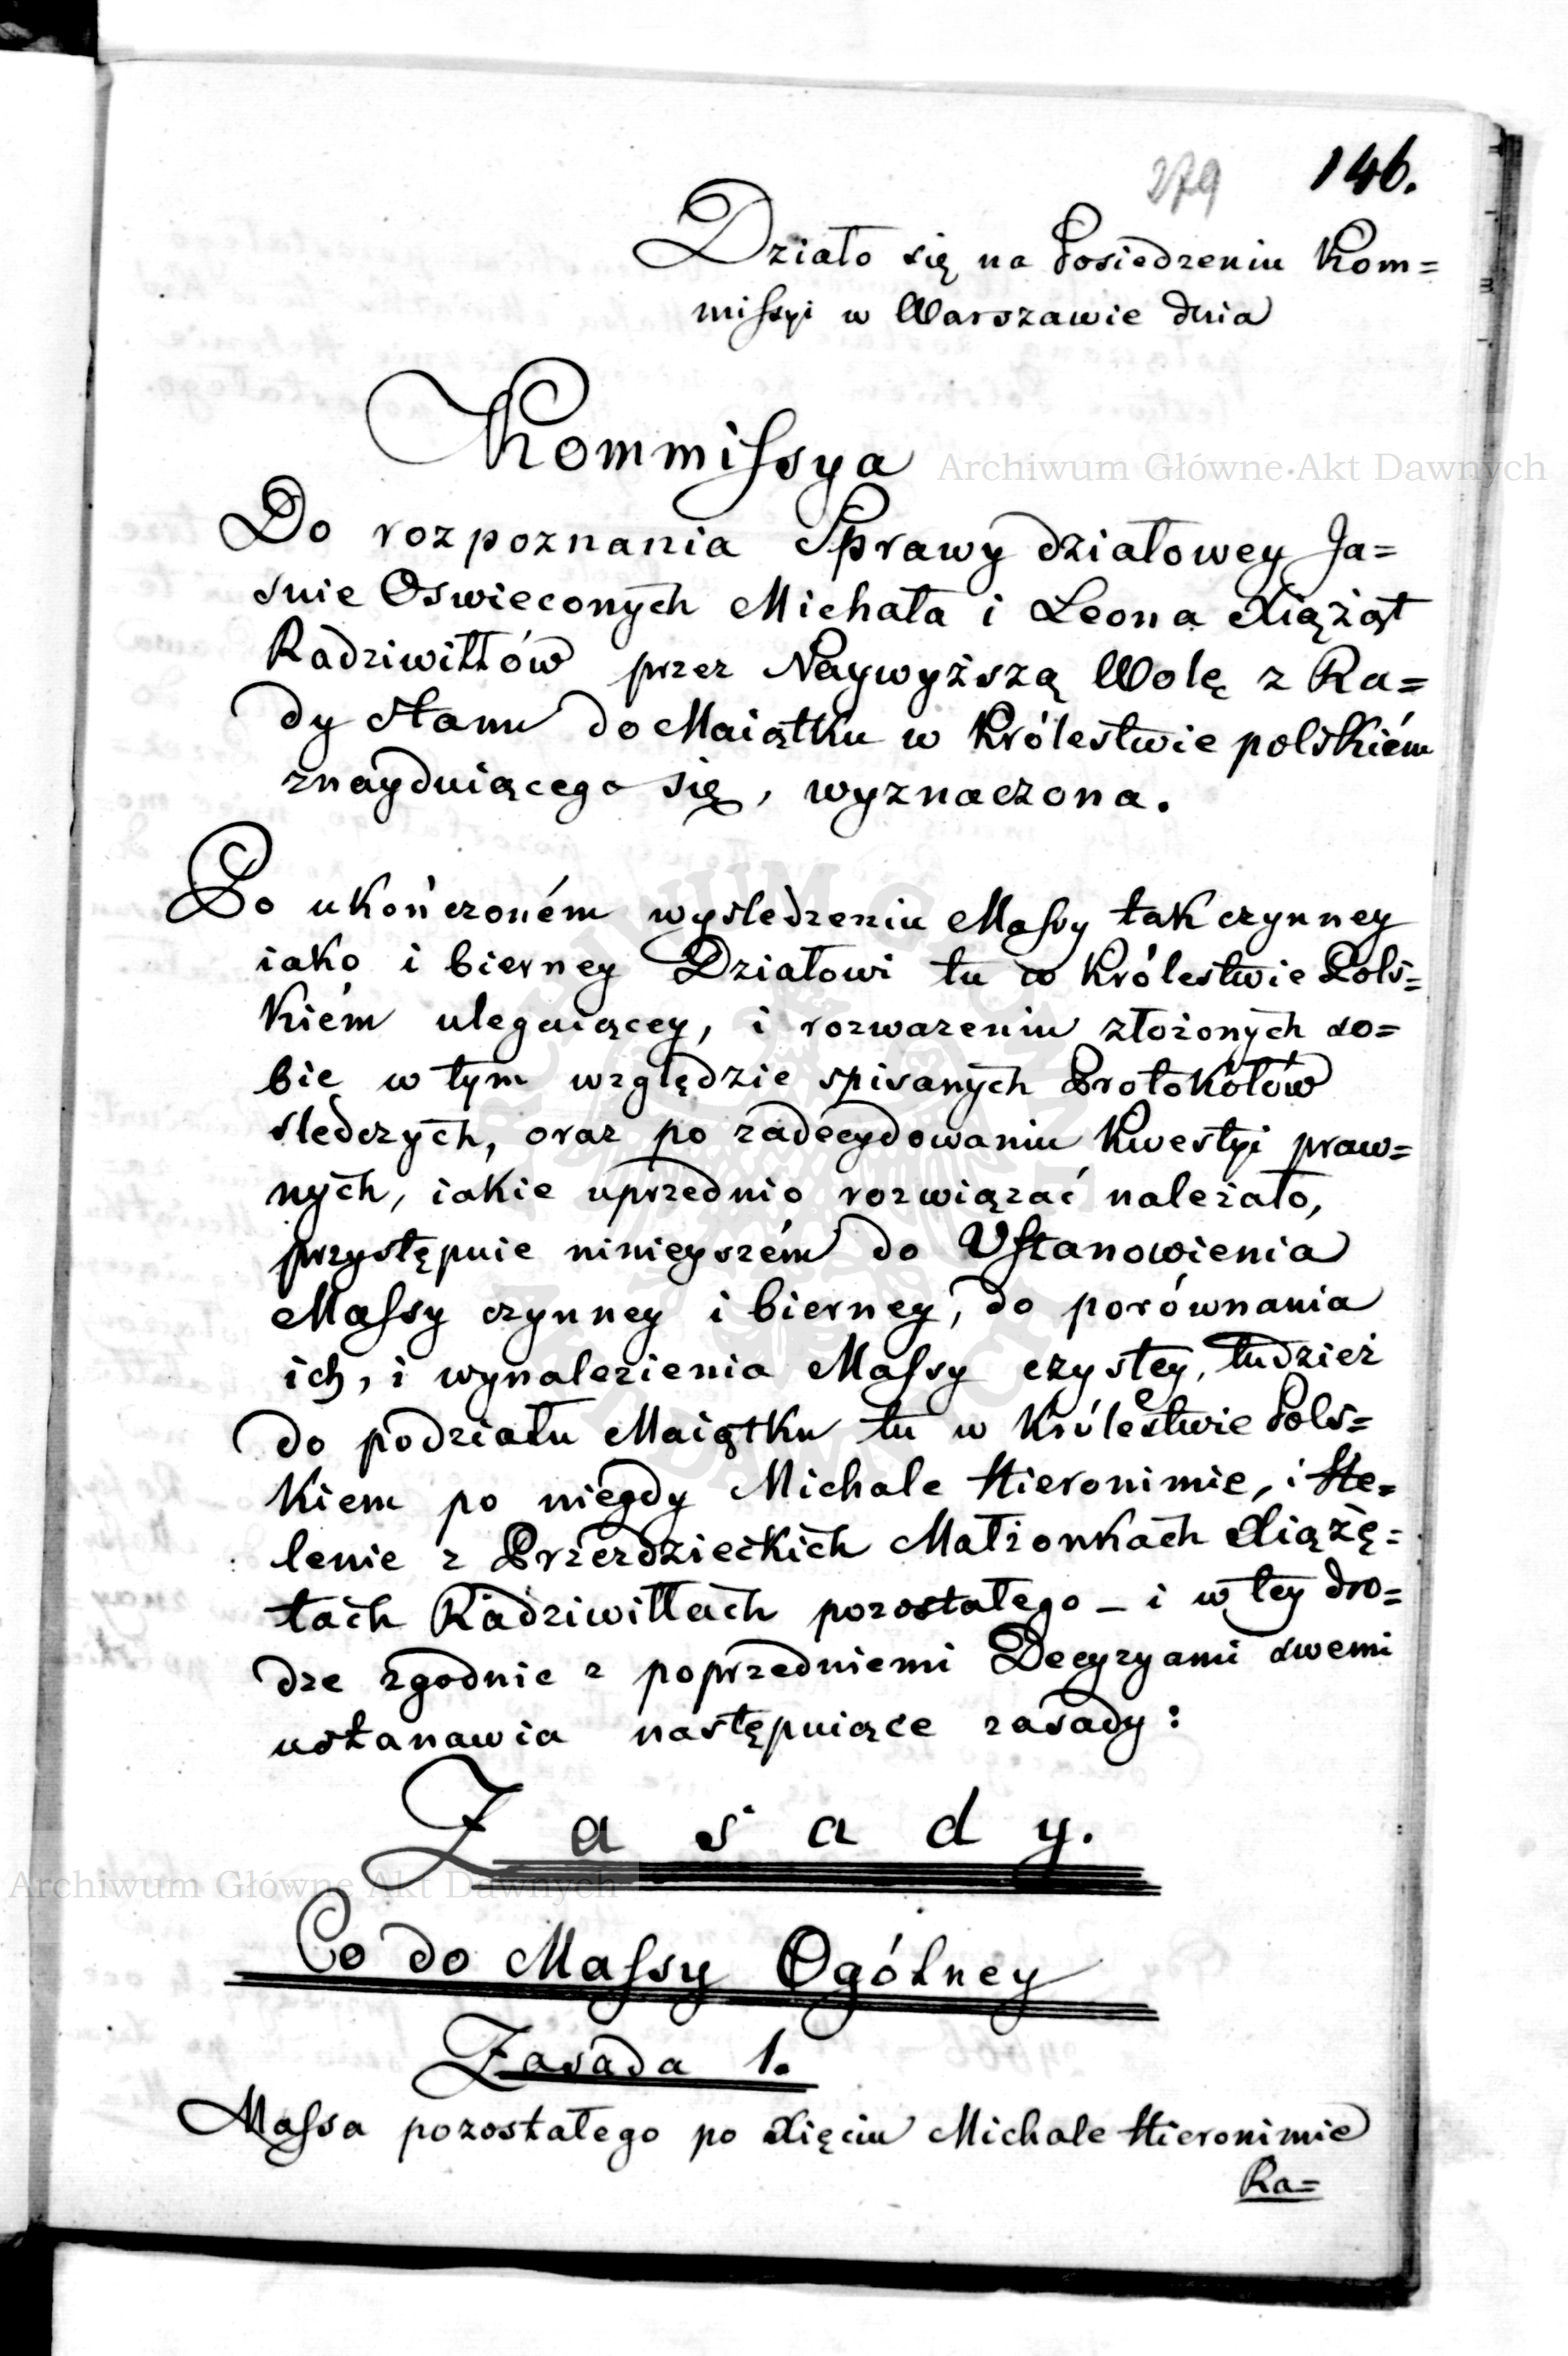 279 146.
Działo się na Posiedzeniu Kom=
missyi w Warszawie dnia
Kommissya
Archiwum Główne Akt Dawnych
Do rozpoznania Sprawy działowey Ja=
snie Oswieconych Michała i Leona Xiążąt
Radziwiłłów przez Naywyższą Wolę z Ra=
dy stanu do Maiątku w Królestwie polskiém
znayduiącego się, wyznaczona.
Po ukończoném wysledzeniu Massy tak czynney
iako i bierney Działowi tu w Królestwie Pols=
kiém ulegaiącey, i rozwarzeniu złożonych so=
bie w tym względzie spisanych Protokółów
sledczych, oraz po zadecydowaniu kwestyi praw=
nych, iakie uprzednio rozwiązać należało,
przystępuie ninieyszém do Ustanowienia
Massy czynney i bierney, do porównania
ich, i wynalezienia Massy czystey, tudzież
do podziału Maiątku tu w Królestwie Pols=
kiem po niegdy Michale Hieronimie, i He=
lenie z Przezdzieckich Małżonkach Xiążę=
tach Radziwiłłach pozostałego – i w tey dro=
dze zgodnie z poprzedniemi Decyzyami swemi
ustanawia następuiące zasady:
Zasady.
Archiwum Główne Akt Dawnych
Co do Massy Ogólney
Zasada 1.
Massa pozostałego po Xięciu Michale Hieronimie
Ra=